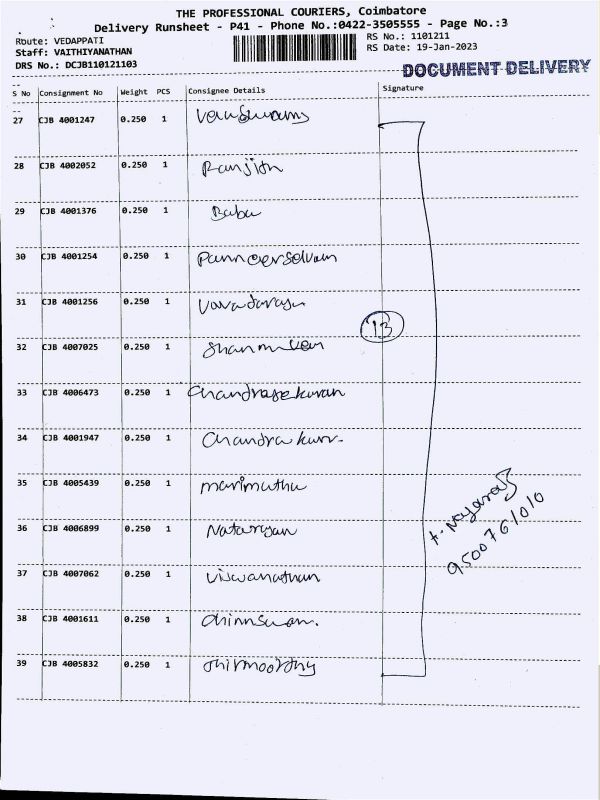 THE PROFESSIONAL COURIERS, Coimbatore
Delivery Runsheet - P41 - Phone No.:0422-3505555 - Page No.:3
Route: VEDAPPATI
Staff: VAITHIYANATHAN
DRS No.: DCJB110121103
RS No.: 1101211
RS Date: 19-Jan-2023
DOCUMENT DELIVERY
S No Consignment No Weight PCS Consignee Details Signature
27 CJB 4001247 0.250 1
28 CJB 4002052 0.250 1 Ranjith
29 CJB 4001376 0.250 1 Babu
30 CJB 4001254 0.250 1 Panneerselvam
31 CJB 4001256 0.250 1 Varadaraju
13
32 CJB 4007025 0.250 1
33 CJB 4006473 0.250 1 Chandrasekaran
34 CJB 4001947 0.250 1
35 CJB 4005439 0.250 1 Marimuthu
36 CJB 4006899 0.250 1 Natarajan
37 CJB 4007062 0.250 1 Viswanathan
38 CJB 4001611 0.250 1
39 CJB 4005832 0.250 1
9500761010